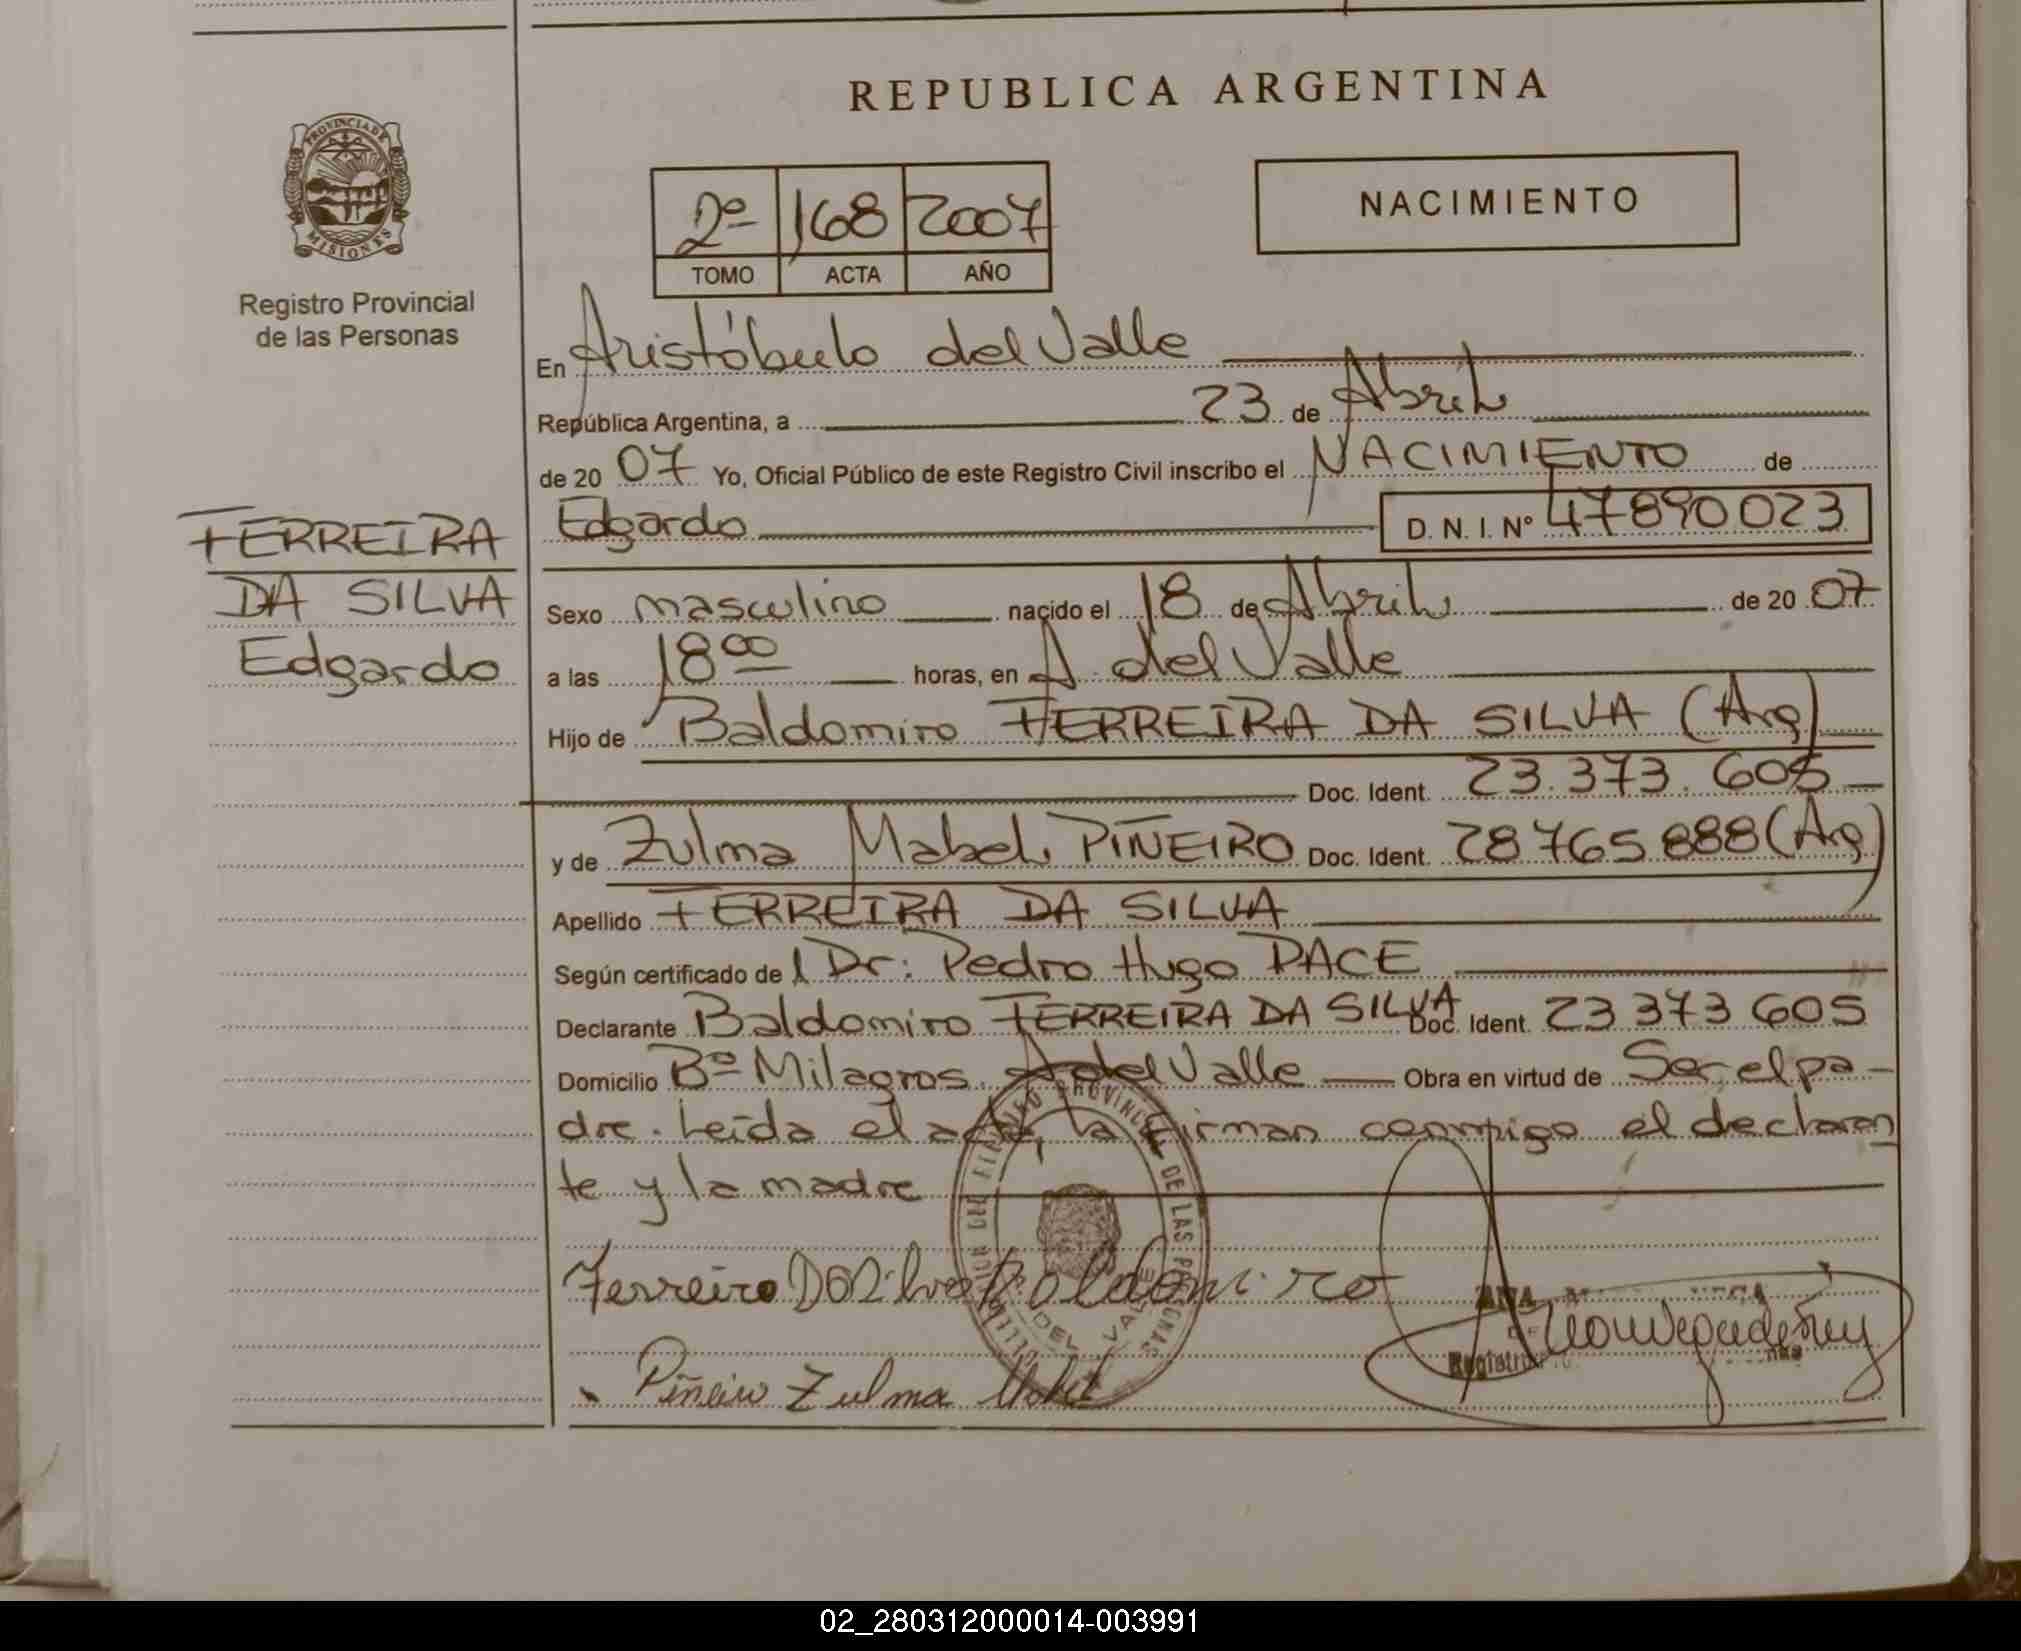 REPUBLICA ARGENTINA
PROVINCIA DE
MISIONES
Registro Provincial
de las Personas
2º 168 2007
TOMO ACTA AÑO
NACIMIENTO
En Aristóbulo del Valle
República Argentina, a 23 de Abril
de 20 07 Yo, Oficial Público de este Registro Civil inscribo el NACIMIENTO de
FERREIRA
DA SILVA
Edgardo
Edgardo D. N. I. Nº 47890023
Sexo masculino nacido el 18 de Abril de 20 07
a las 18 00 horas, en A. del Valle
Hijo de Baldomiro FERREIRA DA SILVA (Arg)
Doc. Ident. 23.373.605
y de Zulma Mabel PIÑEIRO Doc. Ident. 28765888 (Arg)
Apellido FERREIRA DA SILVA
Según certificado de l Dr: Pedro Hugo PACE
Declarante Baldomiro FERREIRA DA SILVA Doc. Ident. 23 373 605
Domicilio Bº Milagros. A del Valle Obra en virtud de Ser el pa-
dre. Leída el acta, la firman conmigo el declaran
te y la madre
Ferreiro Da Silva Baldomiro
Piñeiro Zulma Mabel
DEL VALLE
02_280312000014-003991